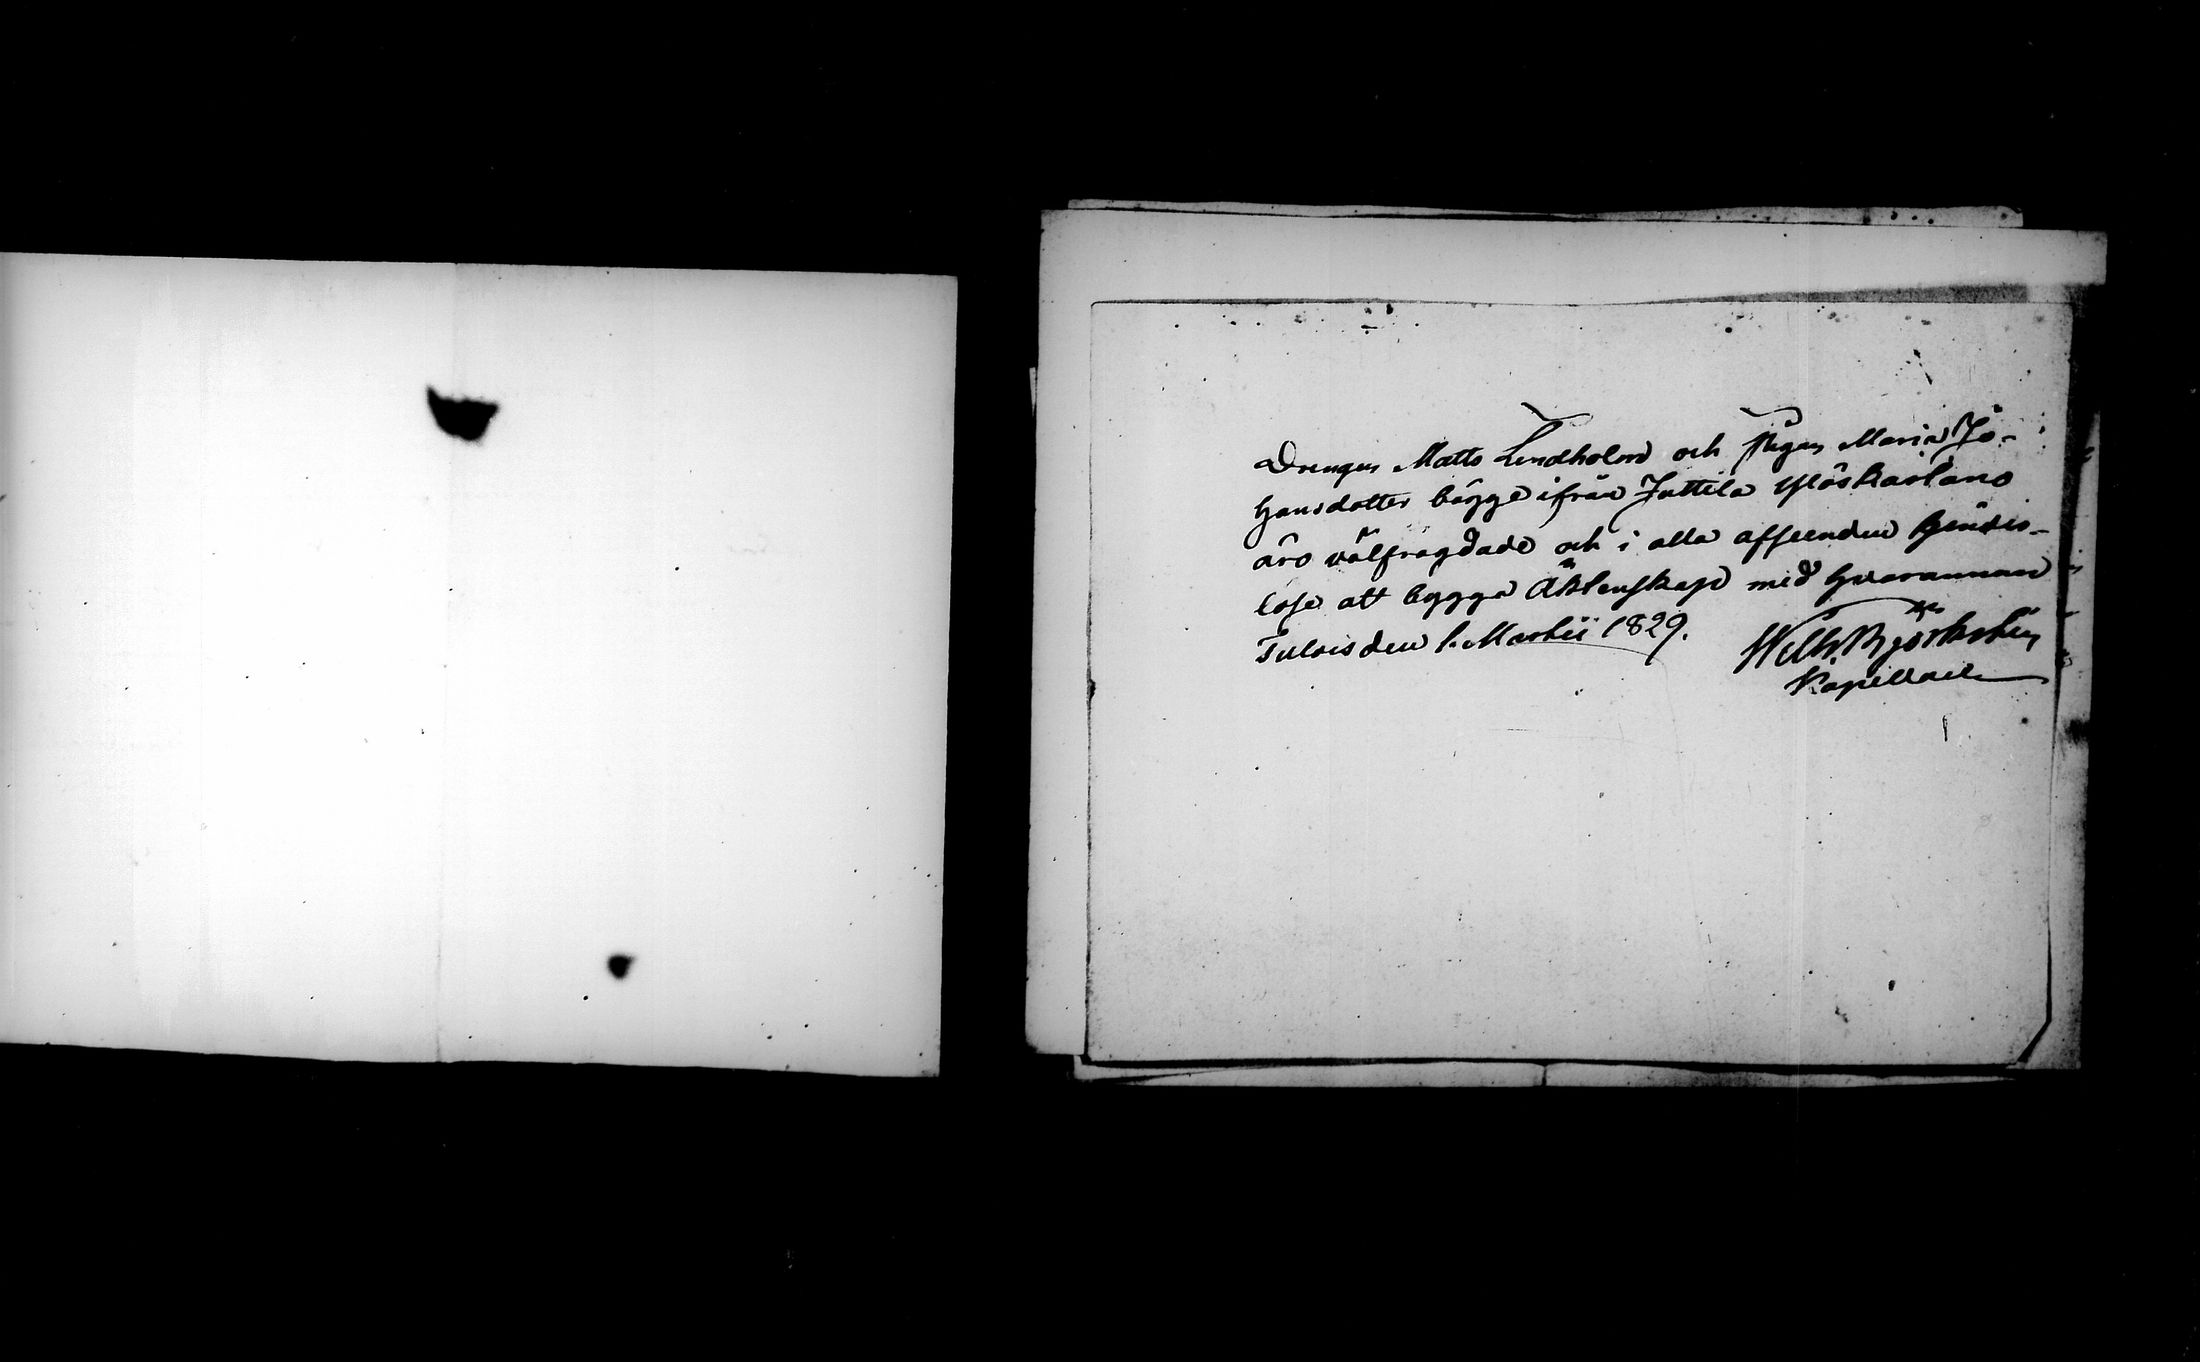 Drengen Matts Lindholm och Pigan Maria Jo-
hansdotter bägge ifrån Juttila
äro välfrägdade och i alla afseenden hinder-
löse att bygga Äktenskap med hvarannan
Tulois den 1. Martii 1829. Wilh. Björksten
Kapellan